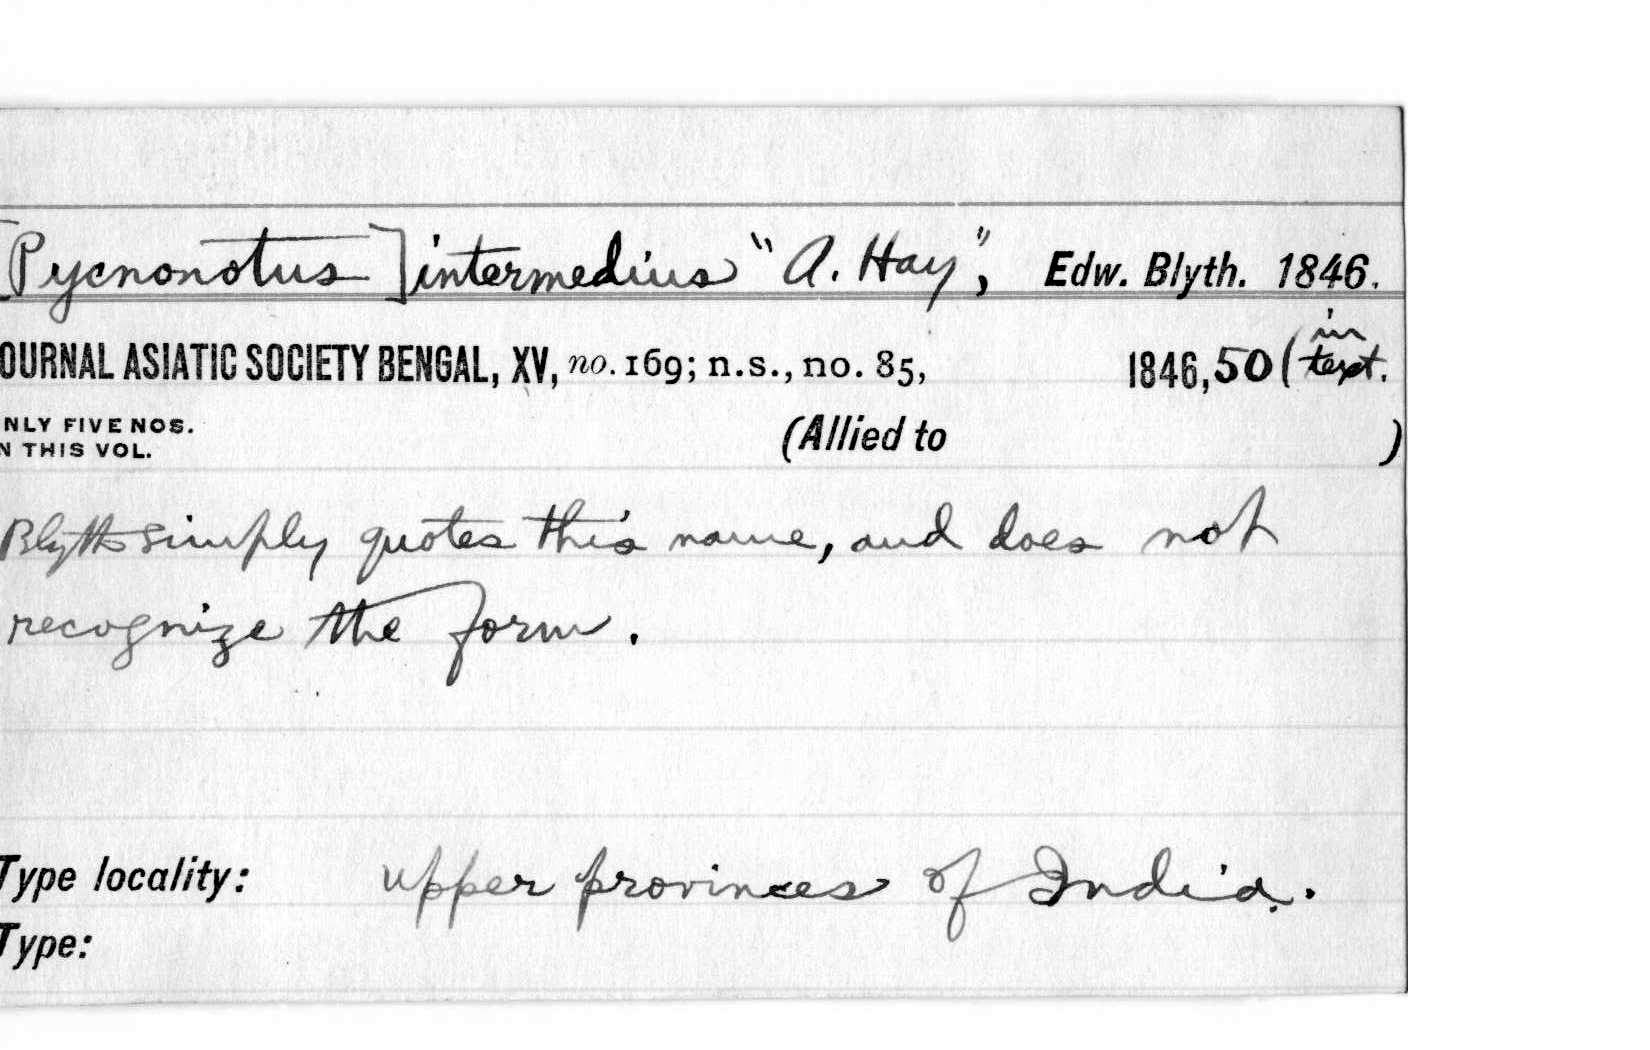 [Pycnonotus] intermedius "A. Hay", Edw. Blyth. 1846.
OURNAL ASIATIC SOCIETY BENGAL, XV, no. 169; n.s., no. 85, 1846, 50 (in text.
NLY FIVE NOS.
N THIS VOL.
(Allied to )
Blyth simply quotes this name, and does not
recognize the form.
Type locality: upper provinces of India.
Type: